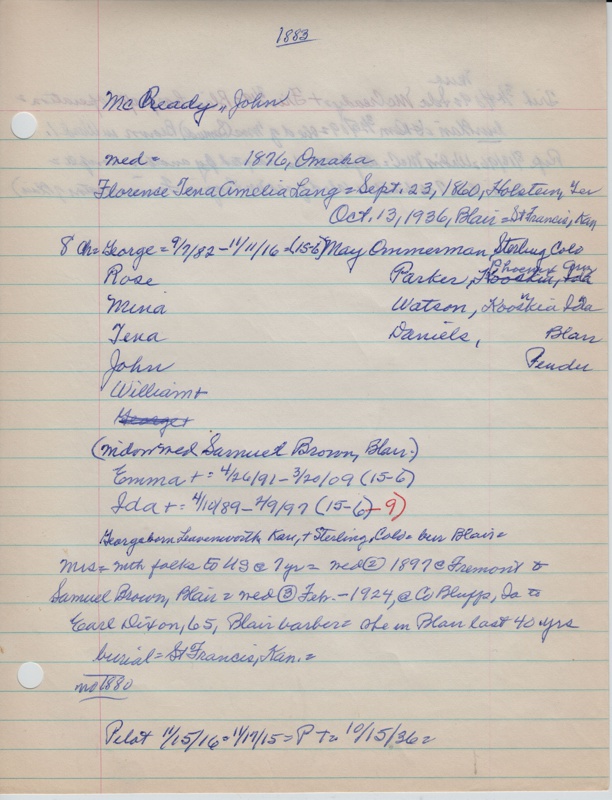 1883
McCready, John
med = 1876, Omaha
Florence Tena Amelia Lang = Sept. 23, 1860, Holstein, Ger
Oct. 13, 1936, Blair = St Francis, Kan
8 Ch = George = 9/7/82 - 11/11/16 = (15-6) May Ommerman Sterling Colo
Phoenix Ariz
Rose Parker, Kooskia, Ida
Mina Watson, Kooskia Ida
Tena Daniels, Blair
John Pender
William +
George +
(widow med Samuel Brown, Blair.)
Emma + = 4/26/91 - 3/20/09 (15-6)
Ida + = 4/10/89 - 2/9/97 (15-6 - 9)
George born Leavenworth Kan, + Sterling, Colo = bur Blair =
Mrs = with folks to US @ 7yr = med ② 1897 @ Fremont to
Samuel Brown, Blair = med ③ Feb. - 1924, @ C Bluffs, Ia to
Earl Dixon, 65, Blair barber = she in Blair last 40 yrs
burial = St Francis, Kan. =
no 1880
Pilot 11/15/16 = 11/17/15 = P T = 10/15/36 =